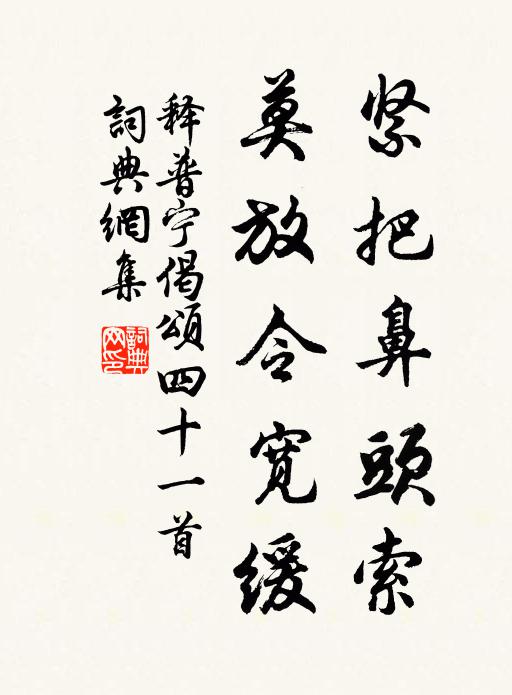 紧把鼻頭索
莫放令寛緩
释普宁偈頌四十一首
詞典網集
詞典
网印